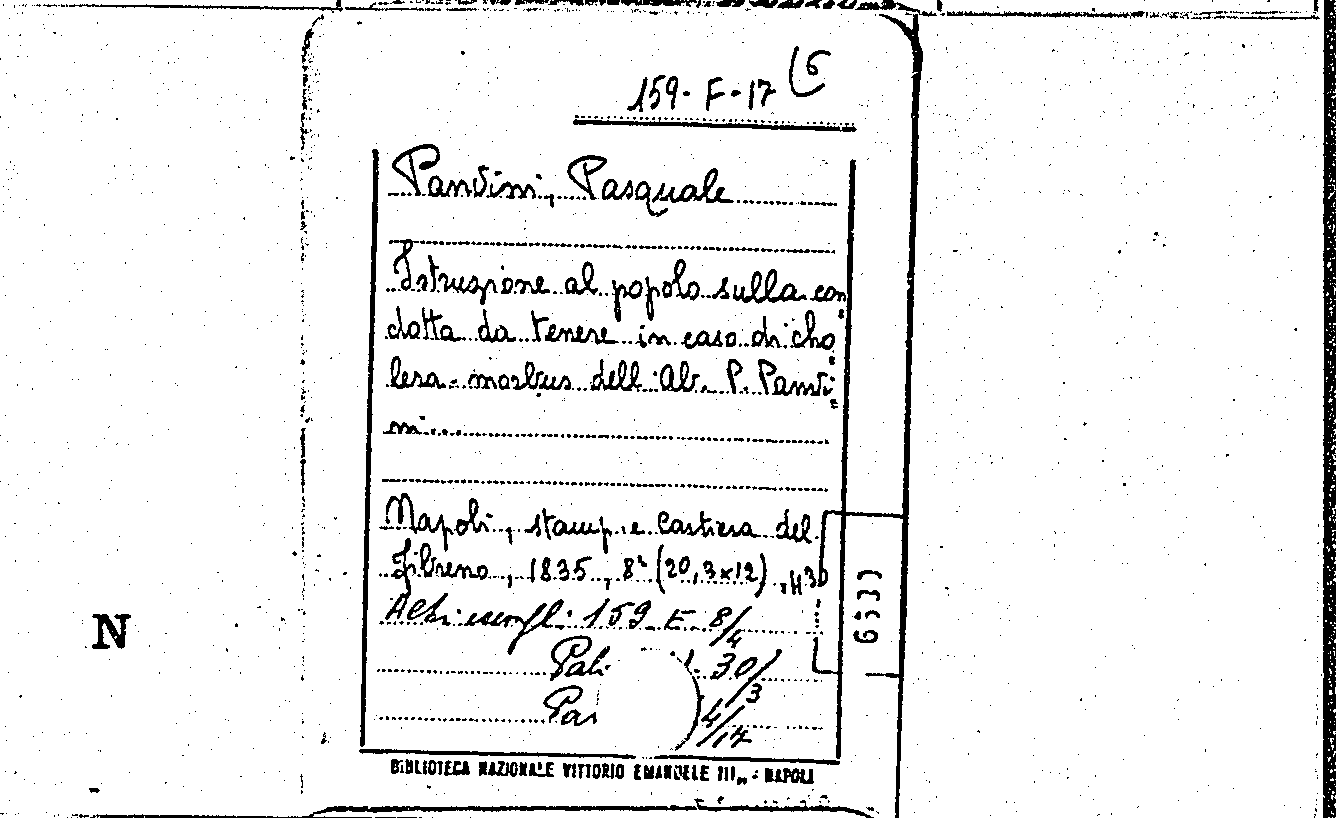 159-F-17 (5
Pandini, Pasquale
Istruzione al popolo sulla con
dotta da tenere in caso di cho
lera-morbus dell'Ab. P. Pandi
ni...
Napoli, stamp. e Cartiera del
Fibreno, 1835, 8° (20,3x12)
Altri esempl: 159 E 8/4
30/3
4/14
BIBLIOTECA NAZIONALE VITTORIO EMANUELE III„ - NAPOLI
N